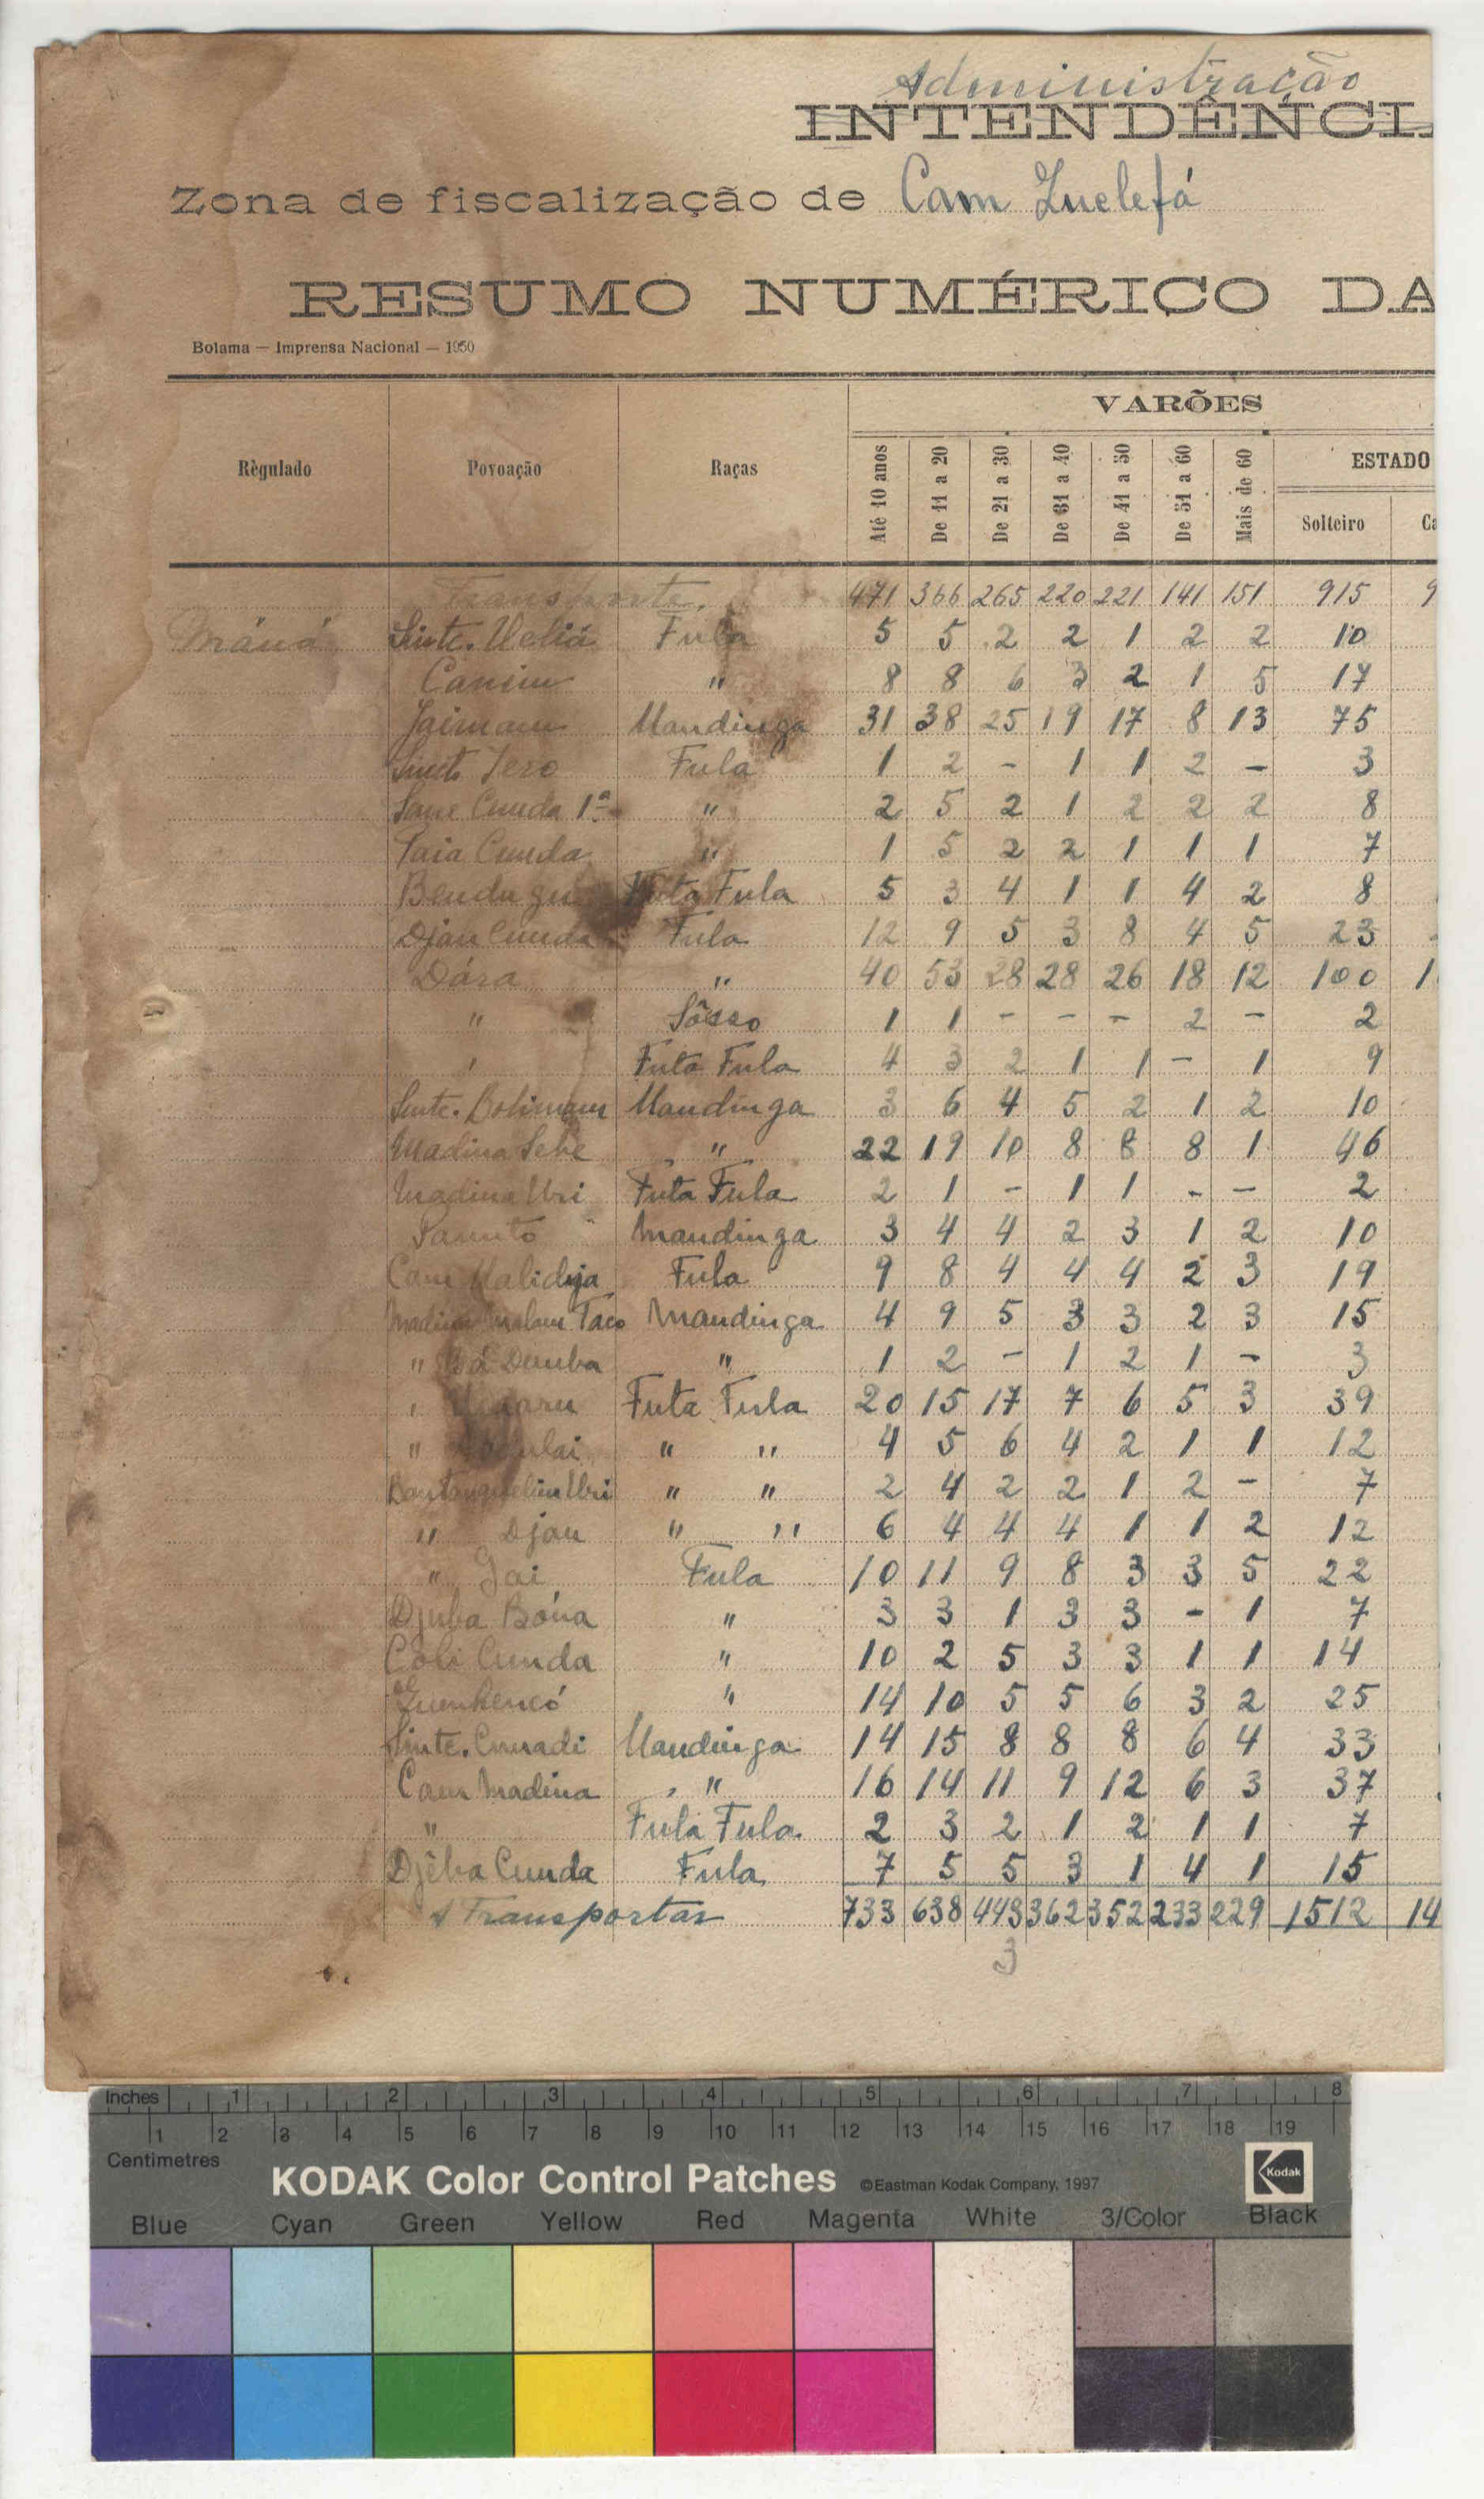 Administração
INTENDÊNCI
Zona de fiscalização de Cam Quelefá
RESUMO NUMÉRICO DA
Bolama — Imprensa Nacional — 1950
VARÕES
Règulado Povoação Raças Até 10 anos De 11 a 20 De 21 a 30 De 31 a 40 De 41 a 50 De 51 a 60 Mais de 60 ESTADO
Solteiro Ca
Transporte. 471 366 265 220 221 141 151 915 9
Máná Sinte. Fula 5 5 2 2 1 2 2 10
Canim " 8 8 6 3 2 1 5 17
Jaimam Mandinga 31 38 25 19 17 8 13 75
Fula 1 2 - 1 1 2 - 3
Sane Cunda 1ª " 2 5 2 1 2 2 2 8
Cunda " 1 5 2 2 1 1 1 7
Bendugu Futa Fula 5 3 4 1 1 4 2 8
Djau Cunda Fula 12 9 5 3 8 4 5 23
Dára " 40 53 28 28 26 18 12 100 1
" Sôsso 1 1 - - - 2 - 2
" Futa Fula 4 3 2 1 1 - 1 9
Sinte. Mandinga 3 6 4 5 2 1 2 10
Madina " 22 19 10 8 8 8 1 46
Madina Uri Futa Fula 2 1 - 1 1 - - 2
Mandinga 3 4 4 2 3 1 2 10
Cam Halidija Fula 9 8 4 4 4 2 3 19
Madina Malam Taco Mandinga 4 9 5 3 3 2 3 15
" Demba " 1 2 - 1 2 1 - 3
" Futa Fula 20 15 17 7 6 5 3 39
" " " 4 5 6 4 2 1 1 12
Uri " " 2 4 2 2 1 2 - 7
" Djau " " 6 4 4 4 1 1 2 12
" Jai Fula 10 11 9 8 3 3 5 22
Djuba Bóna " 3 3 1 3 3 - 1 7
Coli Cunda " 10 2 5 3 3 1 1 14
" 14 10 5 5 6 3 2 25
Sinte. Cumadi Mandinga 14 15 8 8 8 6 4 33
Cam Madina " 16 14 11 9 12 6 3 37
" Futa Fula 2 3 2 1 2 1 1 7
Djêba Cunda Fula 7 5 5 3 1 4 1 15
A Transportar 733 638 443 362 352 233 229 1512 14
3
Inches 1 2 3 4 5 6 7 8
1 2 3 4 5 6 7 8 9 10 11 12 13 14 15 16 17 18 19
Centimetres
KODAK Color Control Patches ©Eastman Kodak Company, 1997 Kodak
Blue Cyan Green Yellow Red Magenta White 3/Color Black